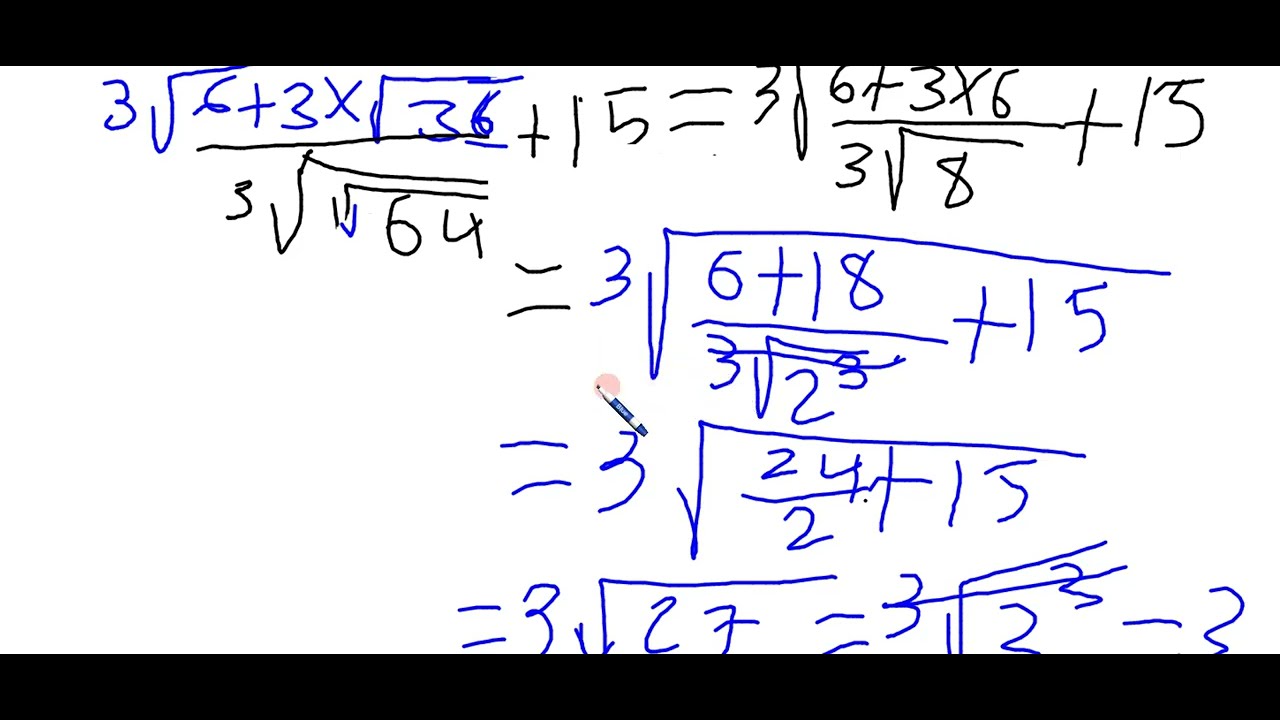 3√6+3×√36 / 3√√64 + 15 = 3√6+3×6 / 3√8 + 15
= 3√6+18 / 3√2³ + 15
= 3√24/2 + 15
= 3√27 = 3√2³ - 3